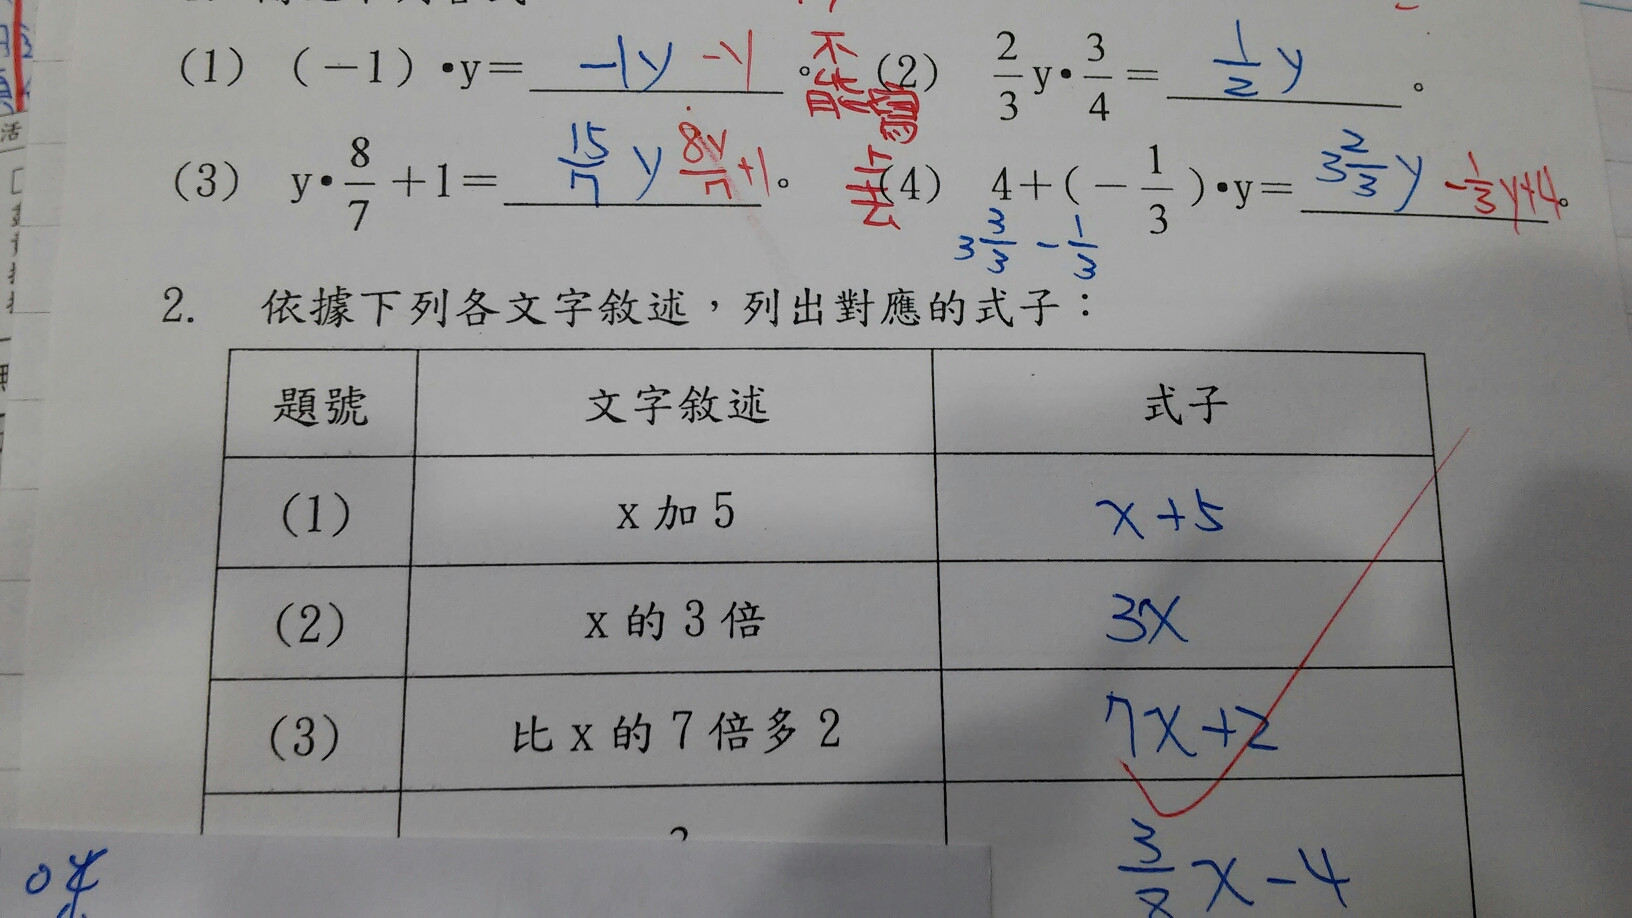 (1) (-1)•y= -1y -y 。 不能 (2) 2/3 y•3/4= 1/2 y 。
(3) y•8/7+1= 15/7 y 8y/7+1 。 (4) 4+(-1/3)•y= 3 2/3 y -1/3y+4 。
3 3/3 - 1/3
2. 依據下列各文字敘述，列出對應的式子：
題號 文字敘述 式子
(1) x 加 5 x+5
(2) x 的 3 倍 3x
(3) 比 x 的 7 倍多 2 7x+2